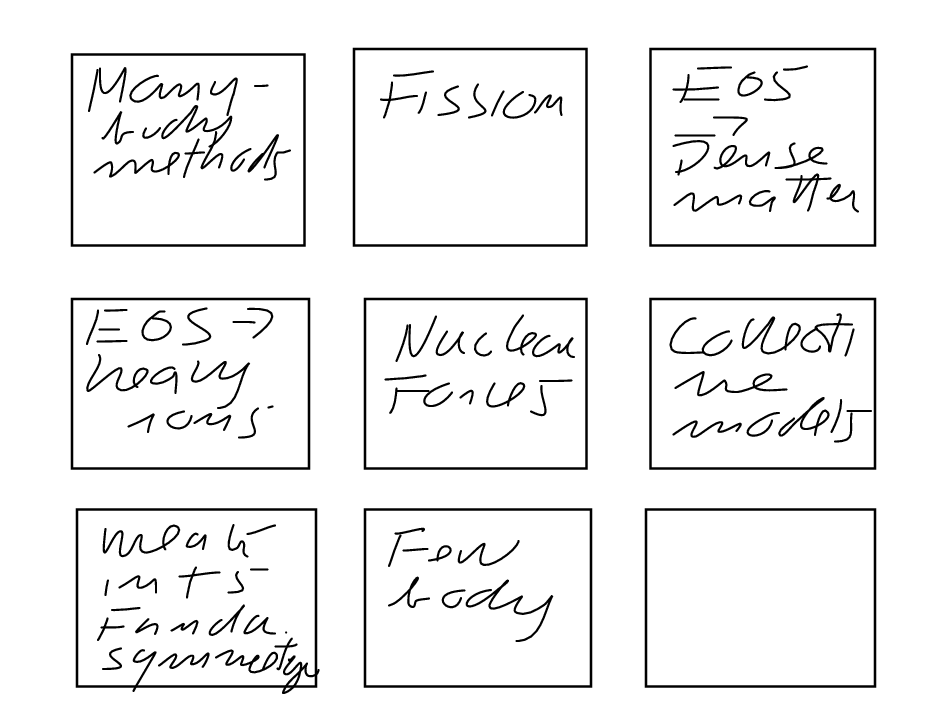 Many-
body
methods
Fission
EOS
→
Dense
matter
EOS →
heavy
ions
Nuclear
Forces
Collecti
ve
models
Weak
ints
Funda.
symmetry
Few
body